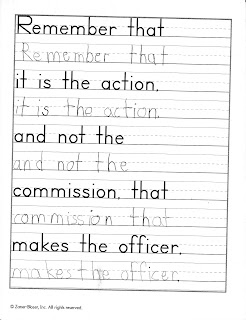 Remember that
Remember that
it is the action,
it is the action,
and not the
and not the
commission, that
commission that
makes the officer.
makes the officer.
© Zaner-Bloser, Inc. All rights reserved.